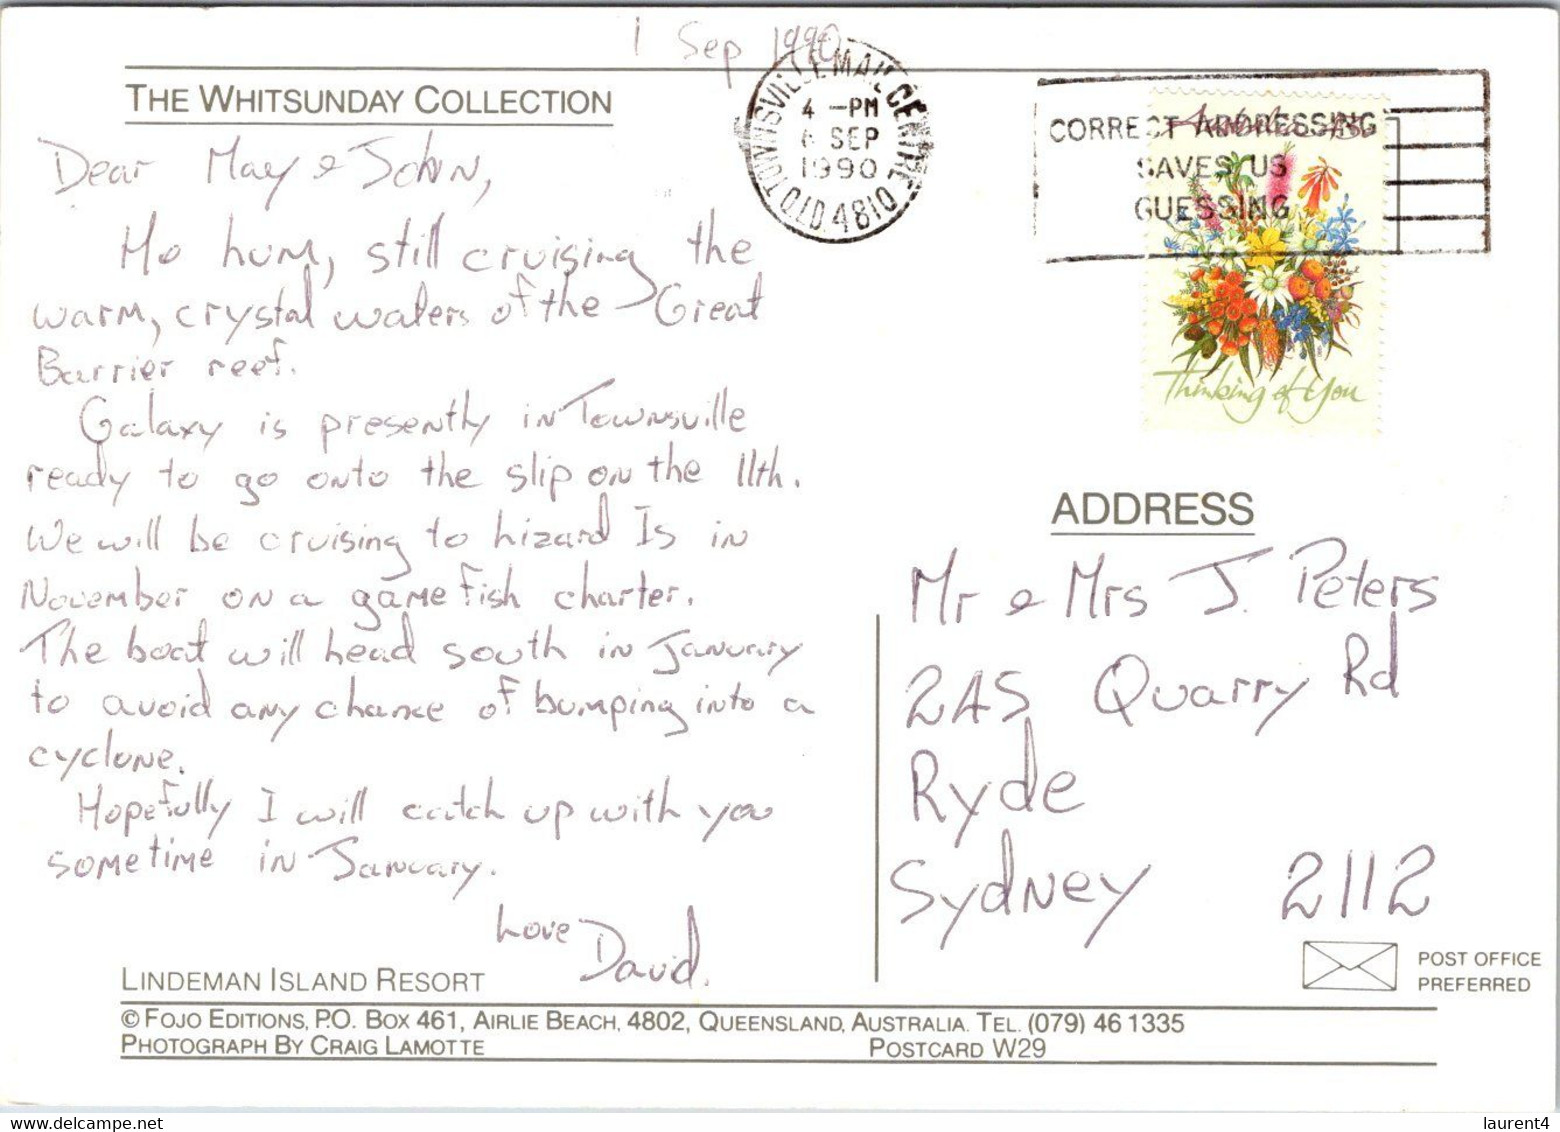 1 Sep 1990
THE WHITSUNDAY COLLECTION
Dear May & John,
Ho hum, still cruising the
warm, crystal waters of the Great
Barrier reef.
Galaxy is presently in Townsville
ready to go onto the slip on the 11th.
We will be cruising to Lizard Is in
November on a game fish charter.
The boat will head south in January
to avoid any chance of bumping into a
cyclone.
Hopefully I will catch up with you
sometime in January.
Love
David.
LINDEMAN ISLAND RESORT
© FOJO EDITIONS, P.O. BOX 461, AIRLIE BEACH, 4802, QUEENSLAND, AUSTRALIA. TEL. (079) 46 1335
PHOTOGRAPH BY CRAIG LAMOTTE
POSTCARD W29
TOWNSVILLE MAIL CENTRE
4 -PM
6 SEP
1990
QLD. 4810
CORRECT ADDRESSING
SAVES US
GUESSING
Australia
Thinking of You
ADDRESS
Mr & Mrs J. Peters
2A5 Quarry Rd
Ryde
Sydney 2112
POST OFFICE
PREFERRED
laurent4